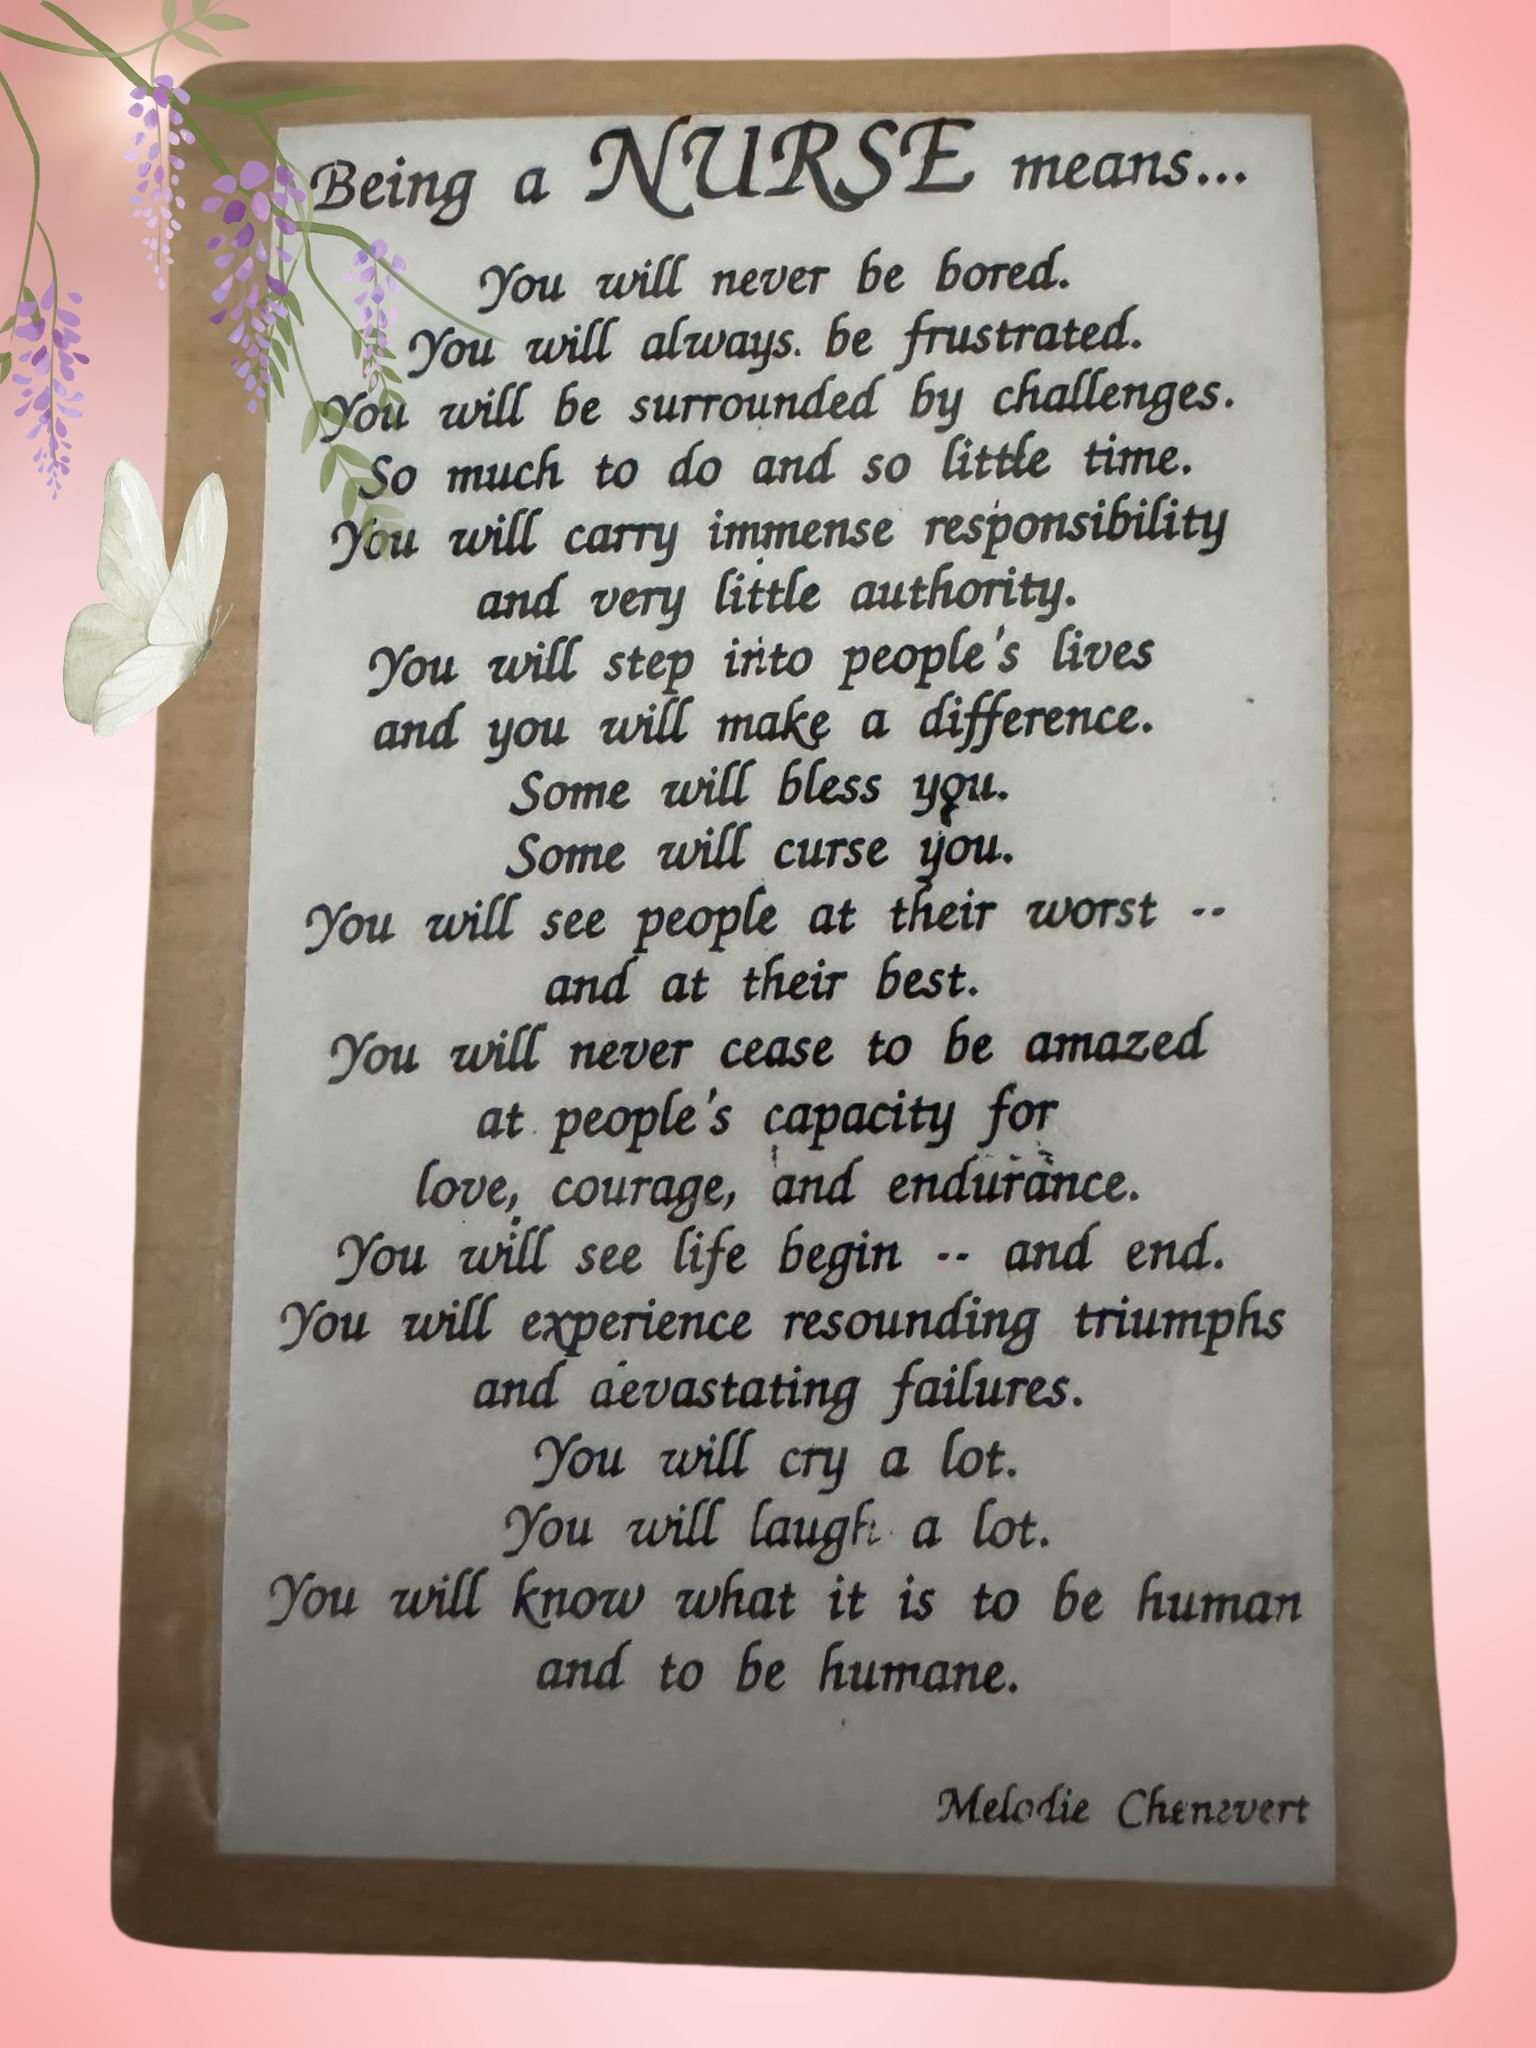 Being a NURSE means...
You will never be bored.
You will always be frustrated.
You will be surrounded by challenges.
So much to do and so little time.
You will carry immense responsibility
and very little authority.
You will step into people's lives
and you will make a difference.
Some will bless you.
Some will curse you.
You will see people at their worst --
and at their best.
You will never cease to be amazed
at people's capacity for
love, courage, and endurance.
You will see life begin -- and end.
You will experience resounding triumphs
and devastating failures.
You will cry a lot.
You will laugh a lot.
You will know what it is to be human
and to be humane.
Melodie Chenevert